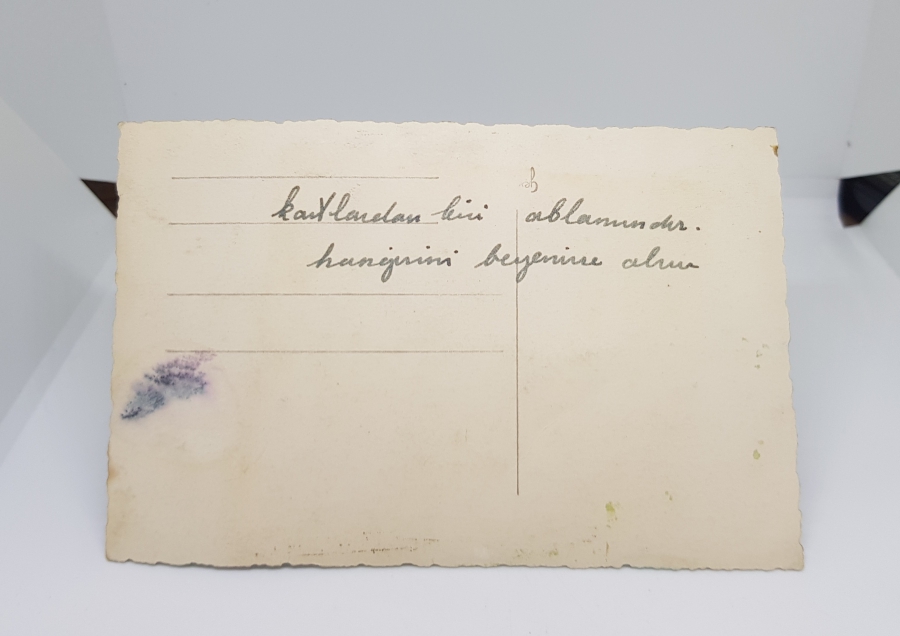 kartlardan biri ablamındır.
hangisini beyenirse alsın